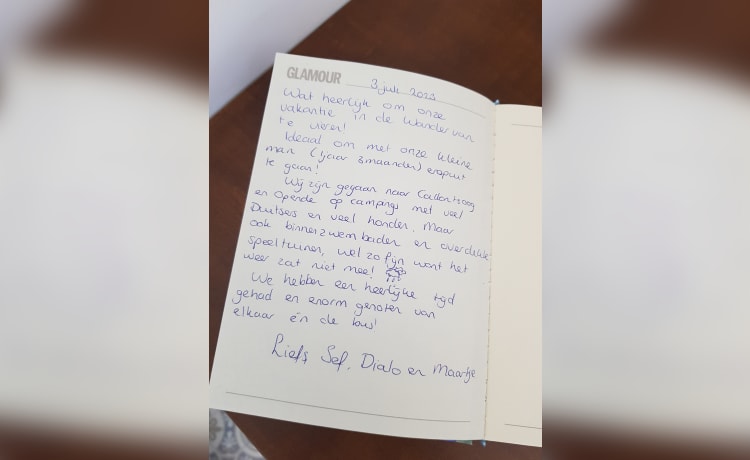 GLAMOUR
3 juli 2023
Wat heerlijk om onze
vakantie in de Wandervan
te vieren!
Ideaal om met onze kleine
man (1jaar 3maanden) eropuit
te gaan!
Wij zijn gegaan naar Callantsoog
en Opende op campings met veel
Duitsers en veel honden. Maar
ook binnenzwembaden en overdekte
speeltuinen, wel zo fijn want het
weer zat niet mee!
We hebben een heerlijke tijd
gehad en enorm genoten van
elkaar én de bus!
Liefs Sef, Dialo en Maartje